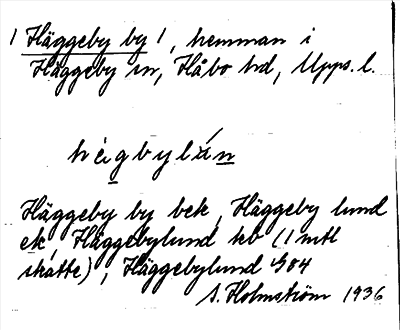 1 Häggeby by 1, hemman i
Häggeby sn, Håbo hd, Upps. l.
hèi̲gbylán̲
Häggeby by bek, Häggeby lund
ek, Häggebylund kb (1 mtl
skatte), Häggebylund G04
S. Holmström 1936